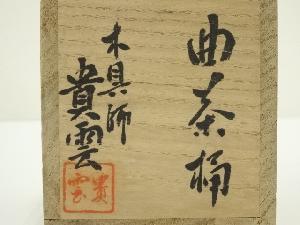 曲茶桶
木具師
貴雲
貴雲